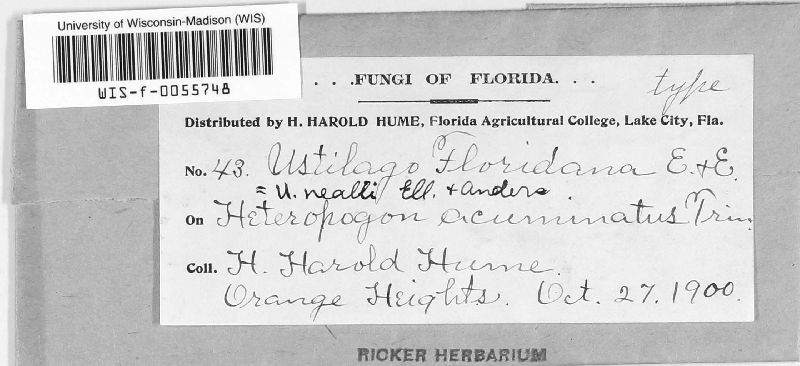 University of Wisconsin-Madison (WIS)
WIS-f-0055748
. . .FUNGI OF FLORIDA. . .
type
Distributed by H. HAROLD HUME, Florida Agricultural College, Lake City, Fla.
No. 43. Ustilago Floridana E. & E.
= U. nealii Ell. & Anders.
On Heteropogon acuminatus Trin.
Coll. H. Harold Hume.
Orange Heights. Oct. 27. 1900.
RICKER HERBARIUM